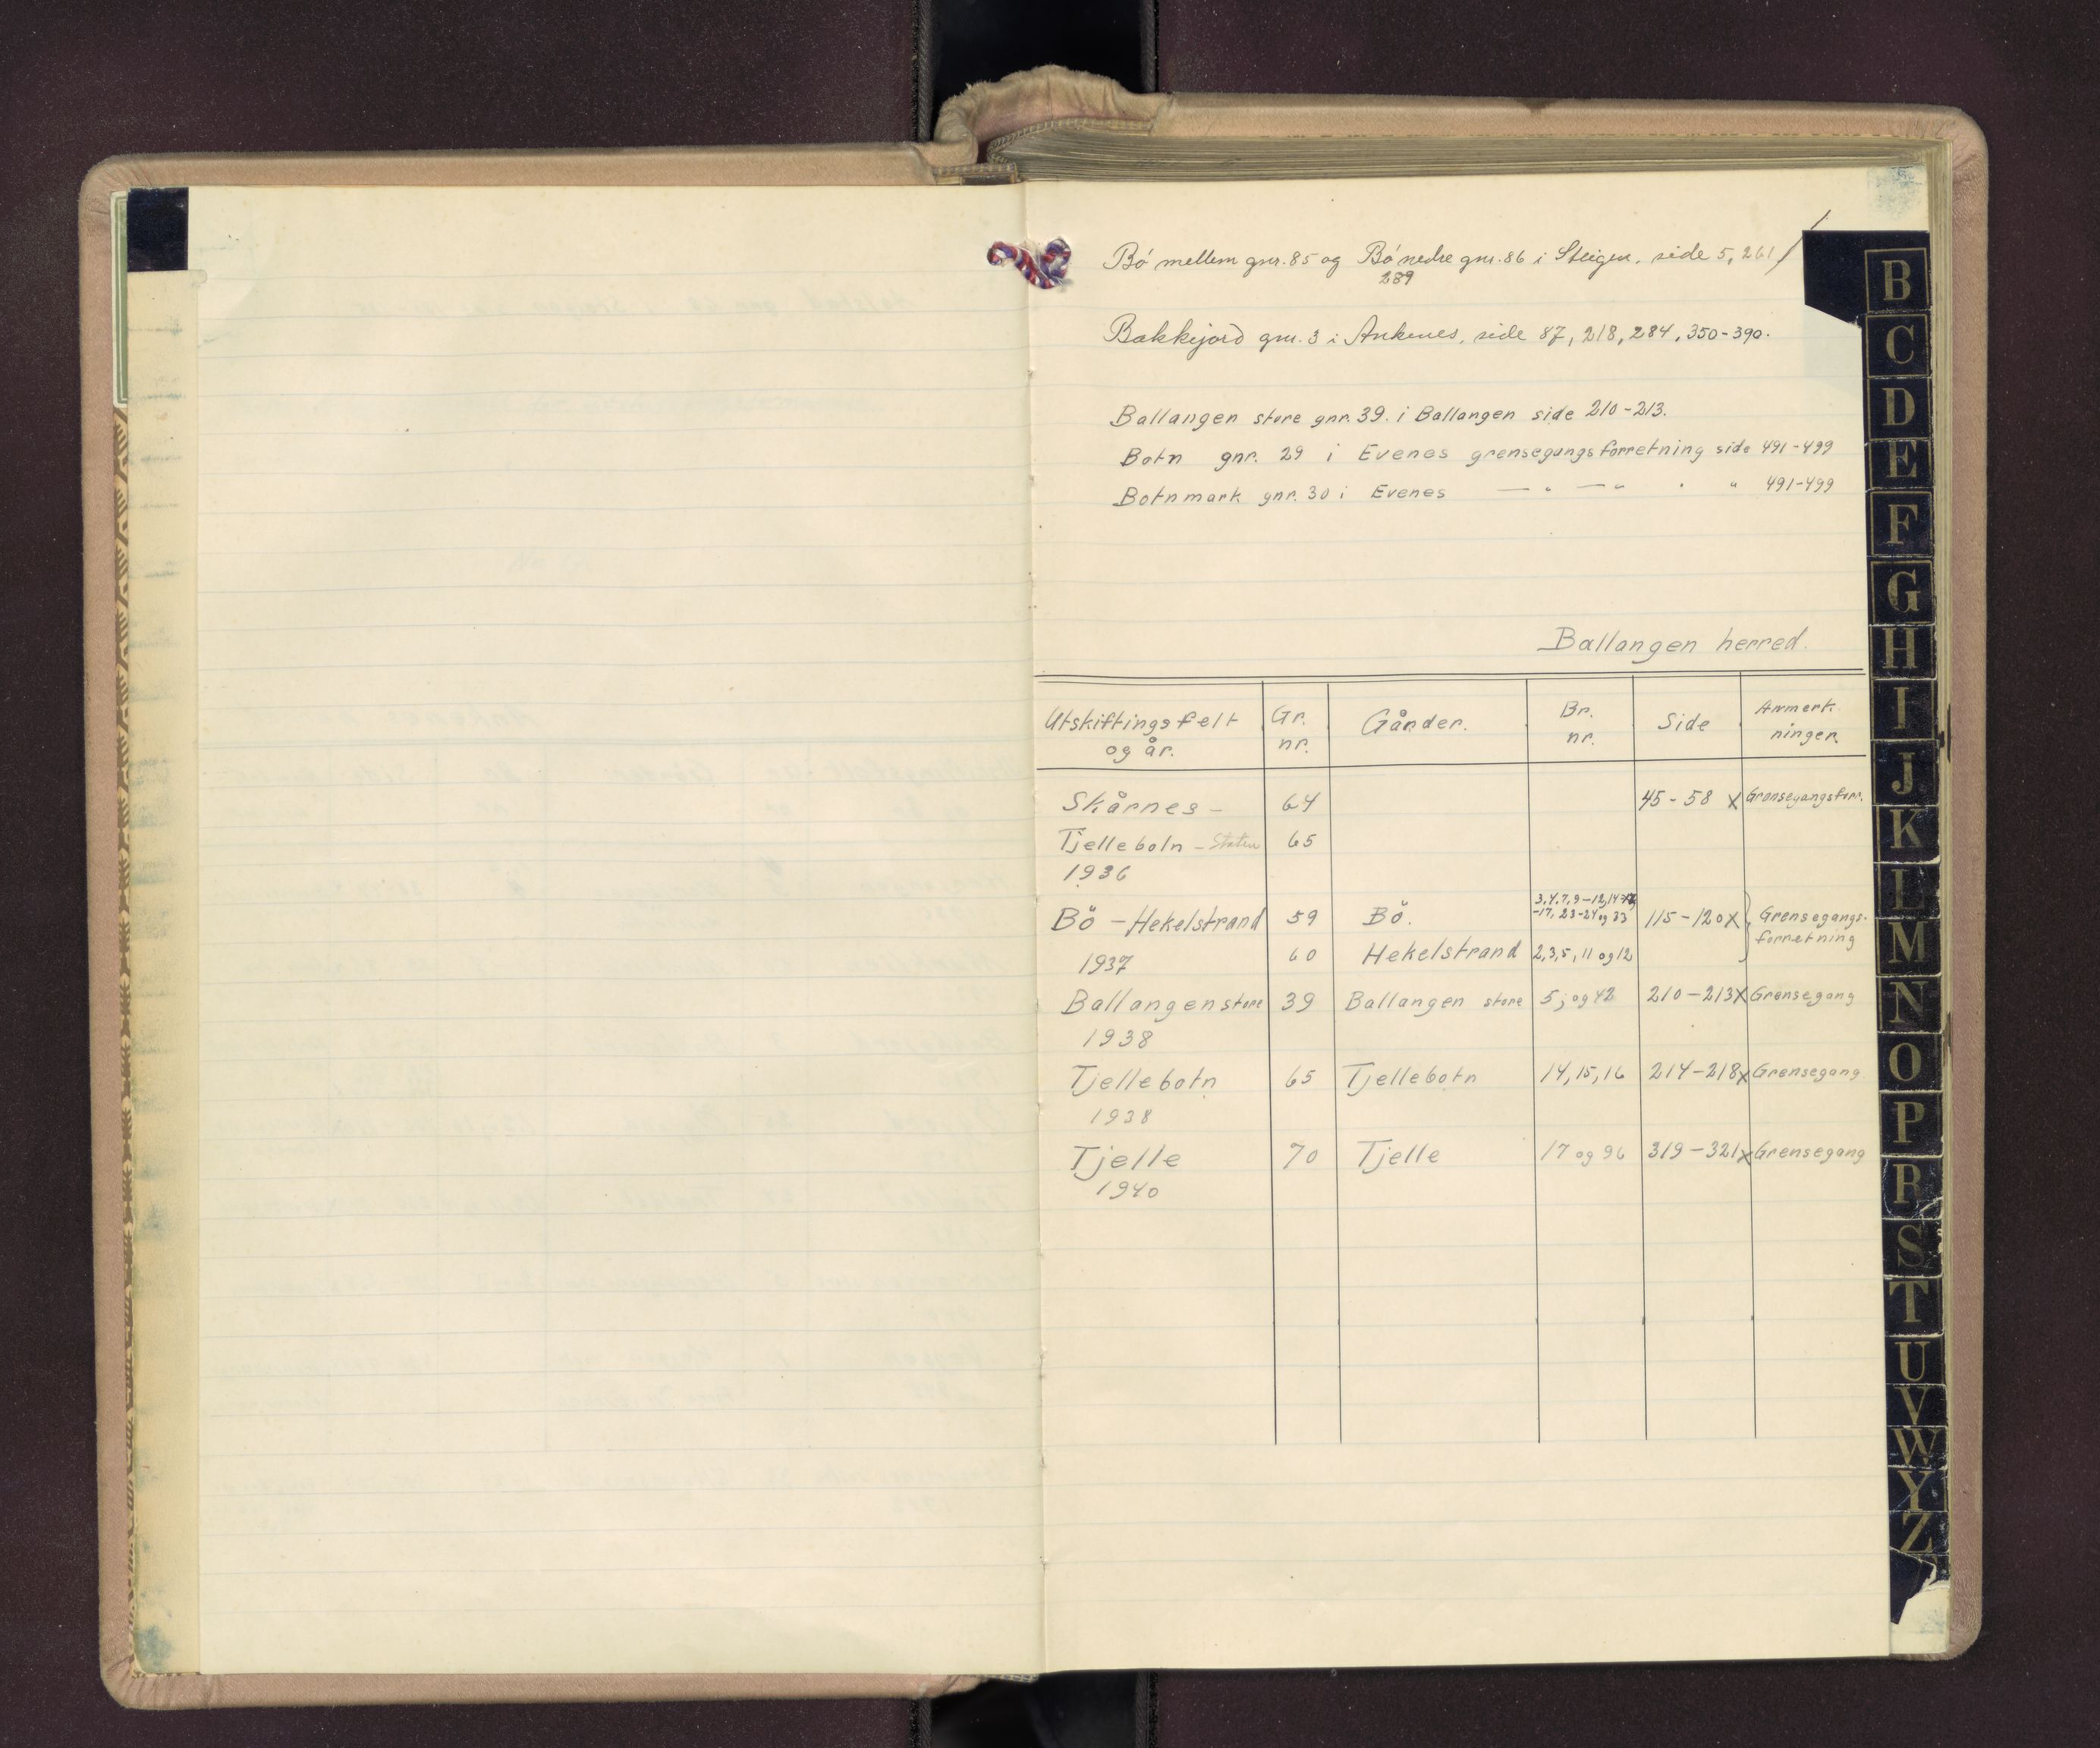 Bó mellem gnr. 85 og Bó nedre gnr. 86 i Steigen, side 5, 261
289
Bakkejord gnr. 3 i Ankenes, side 87, 218, 284, 350-390.
Ballangen store gnr. 39. i Ballangen side 210-213.
Botn gnr. 29 i Evenes grensegangsforretning side 491-499
Botnmark gnr. 30 i Evenes — " — " " " 491-499
Ballangen herred.
Utskiftingsfelt og år. Gr. nr. Gårder. Br. nr. Side Anmerkninger.
Skårnes - 64 45 - 58 x Grensegangsforr.
Tjellebotn - Staten 65
1936
Bö - Hekelstrand 59 Bö. 3,4,7,9-12,14
-17, 23-24 og 33 115-120 x Grensegangs-
forretning
1937 60 Hekelstrand 2,3,5, 11 og 12
Ballangen store 39 Ballangen store 5, og 42 210-213 x Grensegang
1938
Tjellebotn 65 Tjellebotn 14, 15, 16 214-218 x Grensegang
1938
Tjelle 70 Tjelle 17 og 96 319-321 x Grensegang
1940
B
C
D
E
F
G
H
I
J
K
L
M
N
O
P
R
S
T
U
V
W
Y
Z